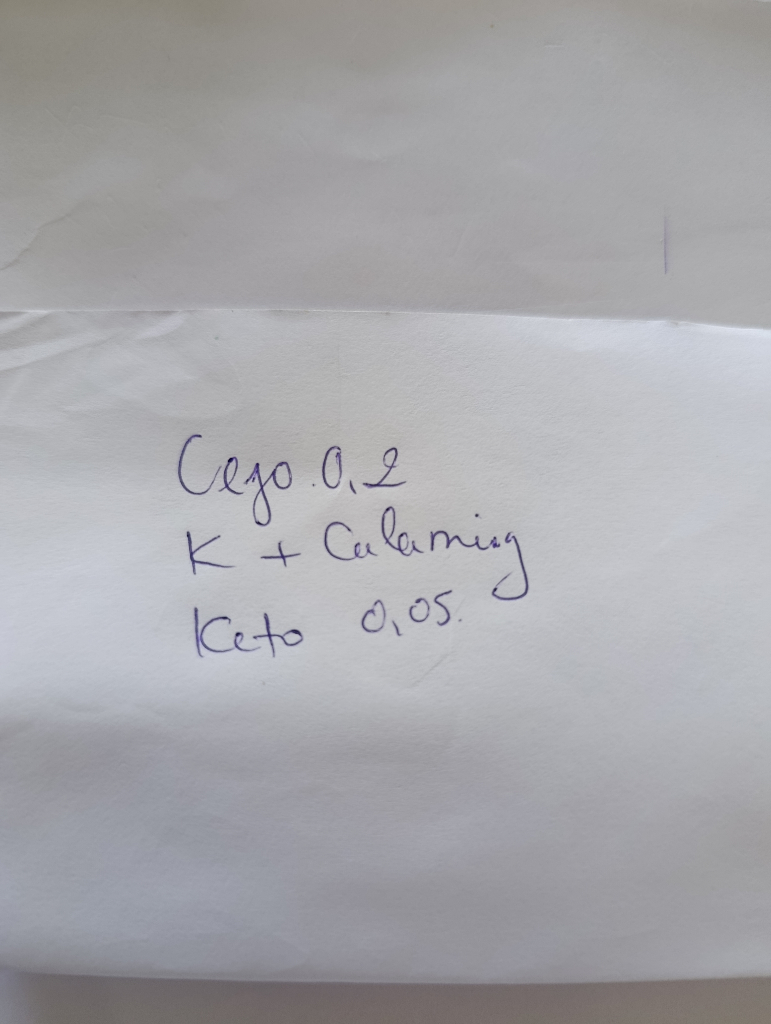 Cezo. 0,2
K + Calaming
Keto 0,05.